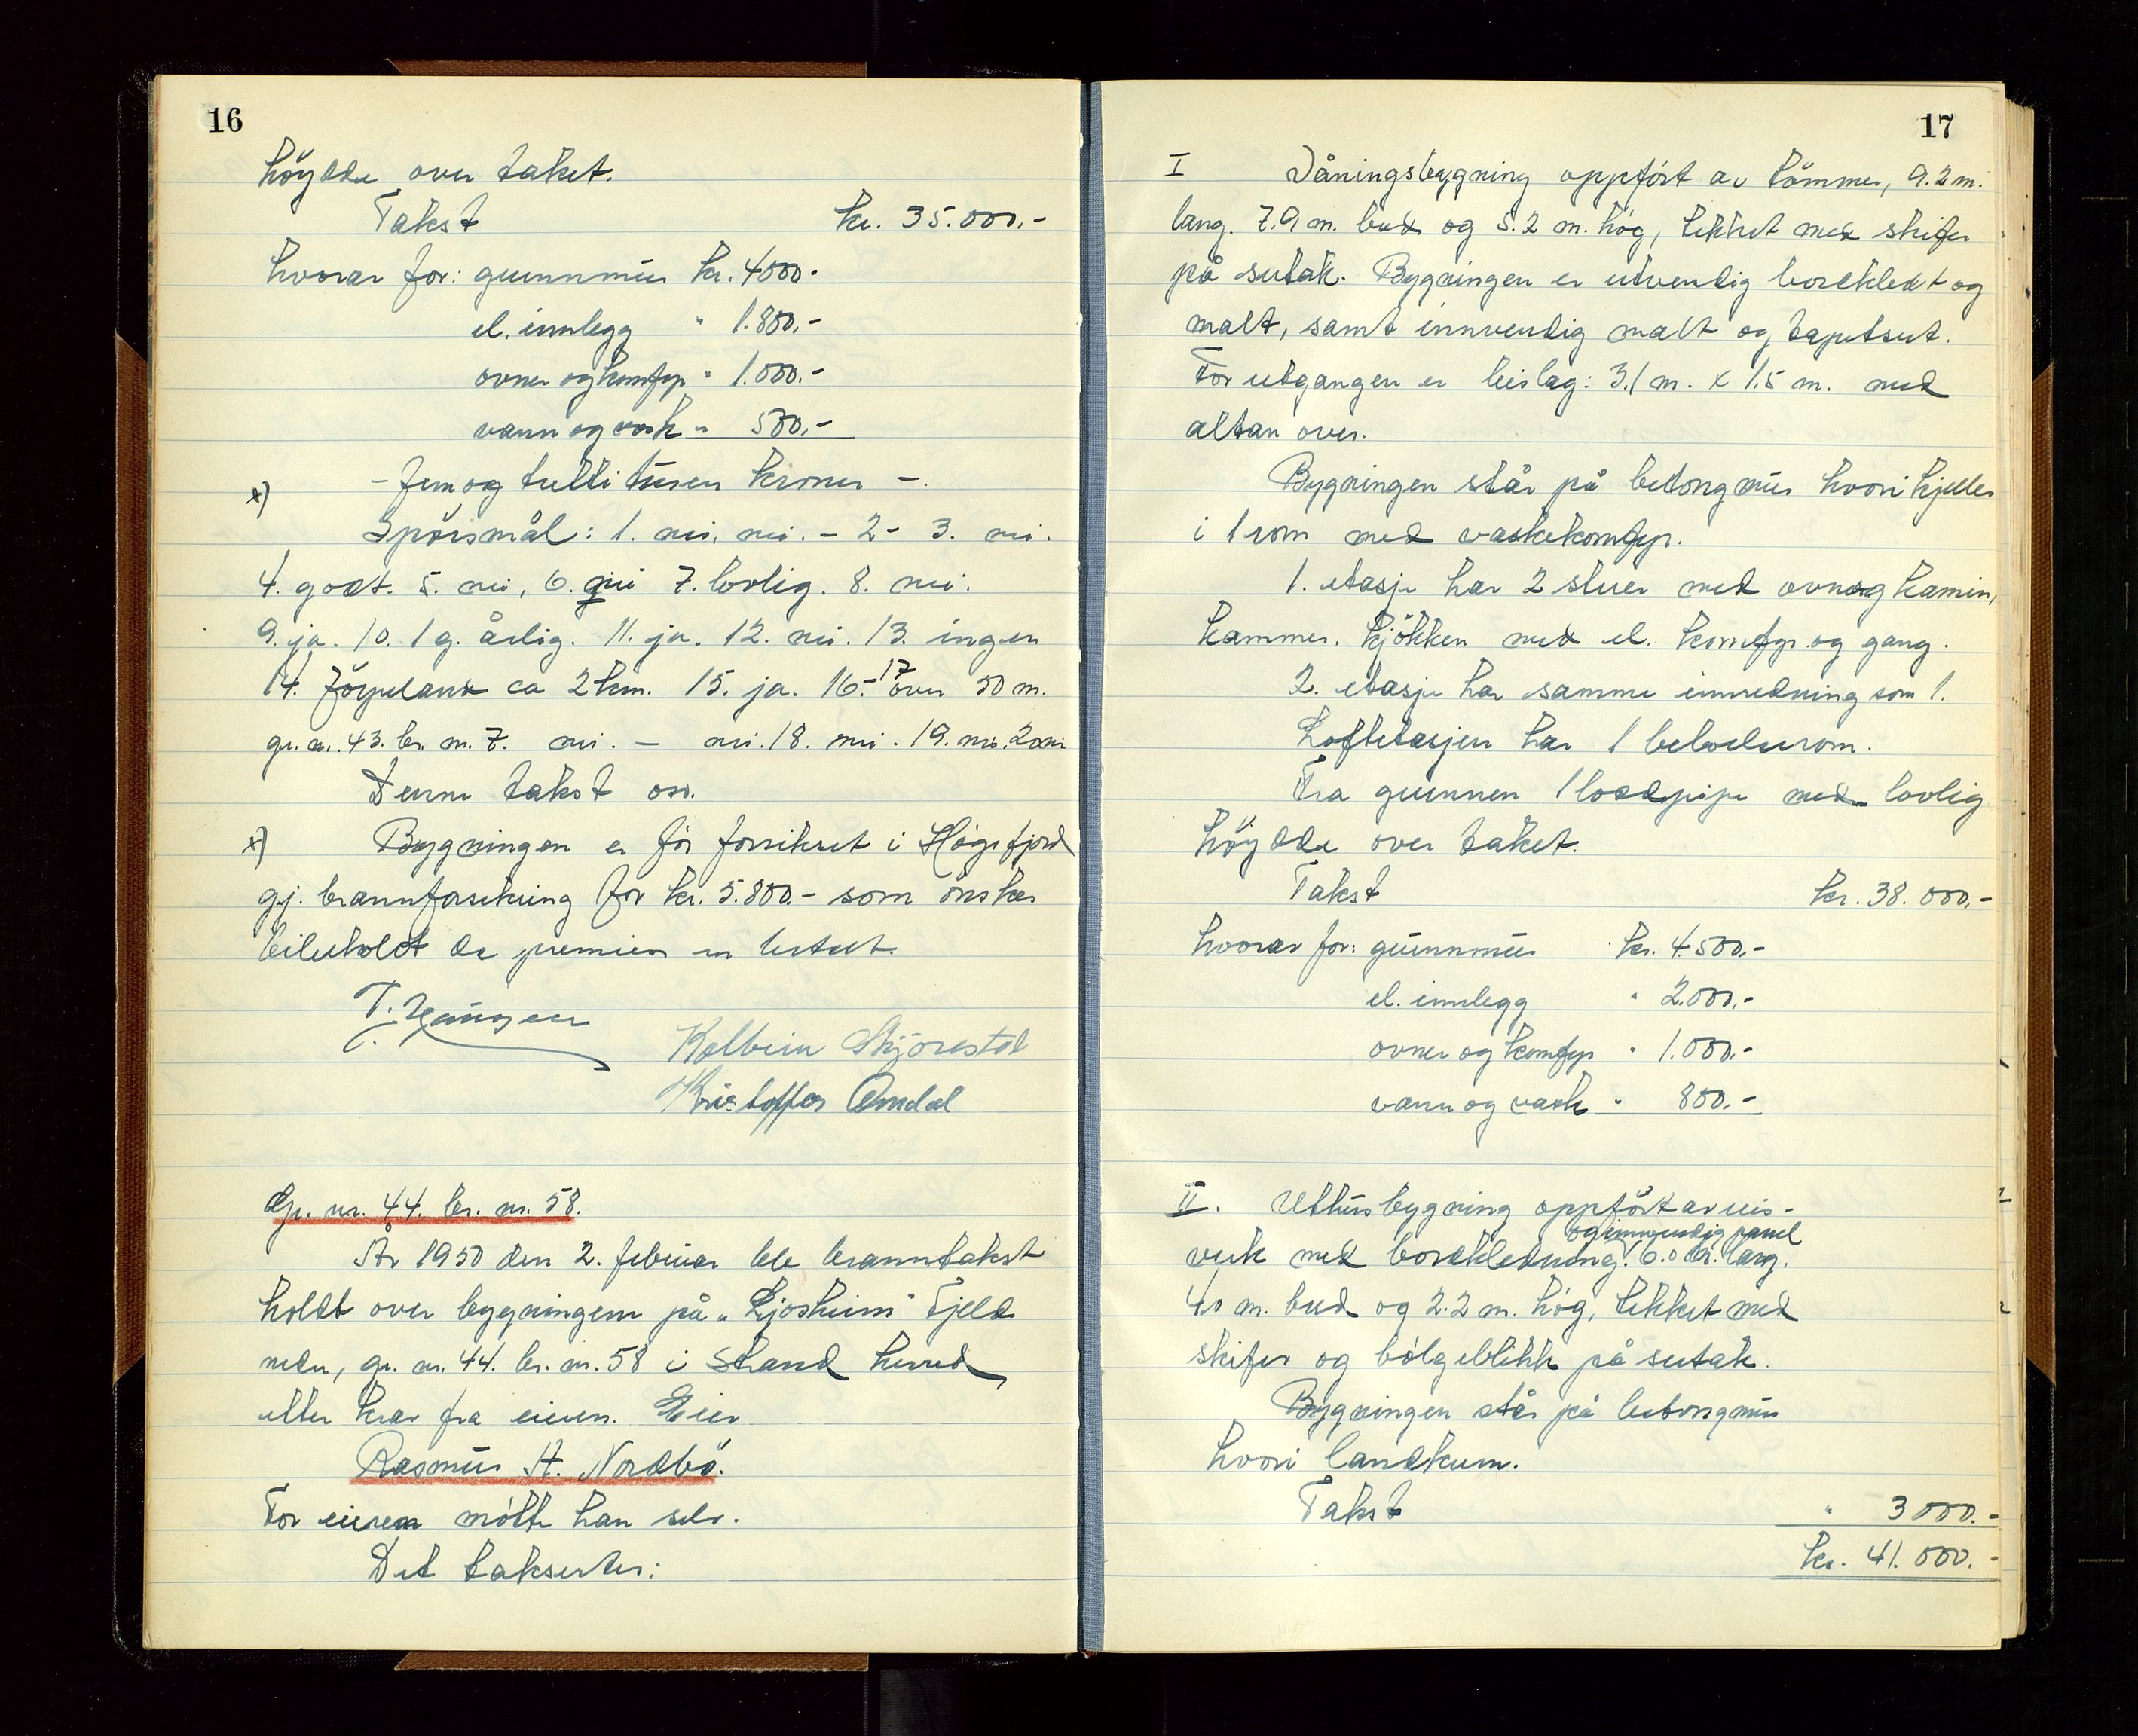 16
höydde over taket.
Takst kr. 35.000.-
hvorav for: grunnmur kr. 4000.-
el. innlegg " 1.800.-
ovner og komfyr " 1.000.-
vann og vask " 500.-
- fem og tretti tusen kroner -.
x)
Spörsmål: 1. nei, nei. - 2 - 3. nei.
4. godt. 5. nei, 6. nei 7. lovlig. 8. nei.
9. ja. 10. 1 g. årlig. 11. ja. 12. nei. 13. ingen
14. Jörpeland ca 2 km. 15. ja. 16. - 17 över 50 m.
gr. nr. 43. br. nr. 7. nei. - nei. 18. nei. 19. nei. 20 nei
Denne takst osv.
x) Bygningen er för forsikret i Högsfjord
gj. brannforsikring for kr. 5.800.- som önskes
beibeholdt da premien er betalt.
Kolbein Skjörestad
Kristoffer Omdal
Gr. nr. 44. br. nr. 58.
År 1950 den 2. februar ble branntakst
holdt over bygningene på "Ljosheim" Fjeld
nedre, gr. nr. 44. br. nr. 58 i Strand herred
etter krav fra eieren. Eier
Rasmus A. Nordbö.
For eieren mötte han selv.
Det takserter:
17
I Våningsbygning oppfört av tömmer, 9.2 m.
lang. 7.9 m. bred og 5.2 m. hög, tekket med skifer
på sutak. Bygningen er utvendig bordkledt og
malt, samt innvendig malt og tapetsert.
For utgangen er beislag: 3.1 m. x 1.5 m. med
altan over.
Bygningen står på betongmur hvori kjeller
i 1 rom med vaskekomfyr.
1. etasje har 2 stuer med ovn og kamin,
kammer. kjökken med el. komfyr og gang.
2. etasje har samme innredning som 1.
Loftetasjen har 1 beboelserom.
Fra grunnen 1 loddpipe med lovlig
höydde over taket.
Takst kr. 38.000.-
hvorav for: grunnmur kr. 4.500.-
el. innlegg " 2.000.-
ovner og komfyr " 1.000.-
vann og vask " 800.-
II. Uthusbygning oppfört av reis-
og innvendig panel
verk med bordkledning. 6.0 m. lang.
4.0 m. bred og 2.2 m. hög, tekket med
skifer og bölgeblikk på sutak.
Bygningen står på betongmur
hvori landkum.
Takst " 3000.-
kr. 41.000.-